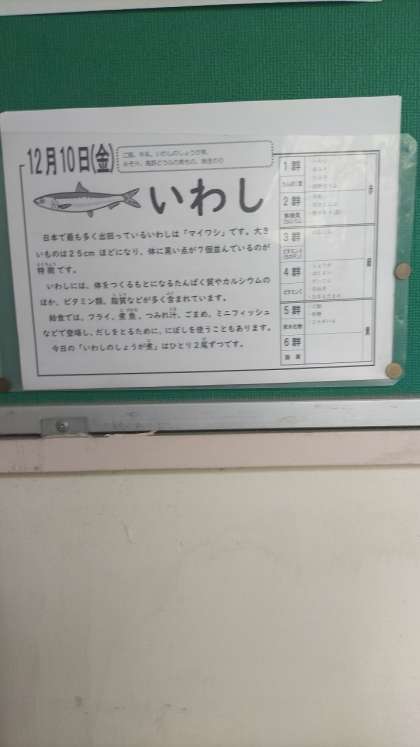 12月10日(金)
ご飯、牛乳、いわしのしょうが煮、
みそ汁、高野どうふの煮もの、焼きのり
いわし
日本で最も多く出回っているいわしは「マイワシ」です。大き
いものは25cmほどになり、体に黒い点が7個並んでいるのが
特徴です。
いわしには、体をつくるもとになるたんぱく質やカルシウムの
ほか、ビタミン類、脂質などが多く含まれています。
給食では、フライ、煮魚、つみれ汁、ごまめ、ミニフィッシュ
などで登場し、だしをとるために、にぼしを使うこともあります。
今日の「いわしのしょうが煮」はひとり2尾ずつです。
1群
たんぱく質
2群
無機質
カルシウム
3群
4群
ビタミンC
5群
炭水化物
6群
脂質